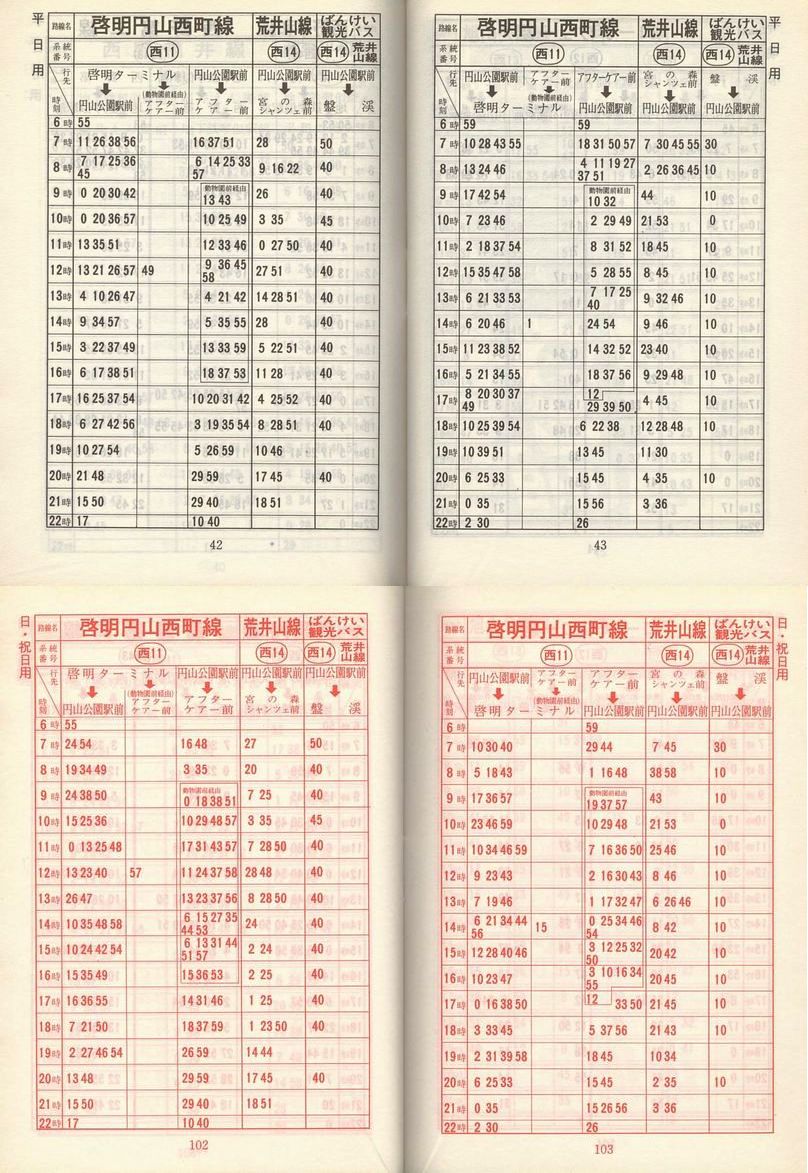 平日用
路線名 啓明円山西町線 荒井山線 ばんけい観光バス
系統番号 西11 西14 西14 荒井山線
行先 時刻 啓明ターミナル ➡ 円山公園駅前 (動物園前経由) アフターケアー前 円山公園駅前 ➡ アフターケアー前 円山公園駅前 ➡ 宮の森シャンツェ前 円山公園駅前 ➡ 盤渓
6時 55
7時 11 26 38 56 16 37 51 28 50
8時 7 17 25 36 45 6 14 25 33 57 9 16 22 40
9時 0 20 30 42 動物園前経由 13 43 26 40
10時 0 20 36 57 10 25 49 3 35 45
11時 13 35 51 12 33 46 0 27 50 40
12時 13 21 26 57 49 9 36 45 58 27 51 40
13時 4 10 26 47 4 21 42 14 28 51 40
14時 9 34 57 5 35 55 28 40
15時 3 22 37 49 13 33 59 5 22 51 40
16時 6 17 38 51 18 37 53 11 28 40
17時 16 25 37 54 10 20 31 42 4 25 52 40
18時 6 27 42 56 3 19 35 54 8 28 51 40
19時 10 27 54 5 26 59 10 46
20時 21 48 29 59 17 45 40
21時 15 50 29 40 18 51
22時 17 10 40
42
平日用
路線名 啓明円山西町線 荒井山線 ばんけい観光バス
系統番号 西11 西14 西14 荒井山線
行先 時刻 円山公園駅前 ➡ 啓明ターミナル アフターケアー前 ➡ (動物園前経由) アフターケアー前 ➡ 円山公園駅前 宮の森シャンツェ前 ➡ 円山公園駅前 盤渓 ➡ 円山公園駅前
6時 59 59
7時 10 28 43 55 18 31 50 57 7 30 45 55 30
8時 13 24 46 4 11 19 27 37 51 2 26 36 45 10
9時 17 42 54 動物園前経由 10 32 44 10
10時 7 23 46 2 29 49 21 53 0
11時 2 18 37 54 8 31 52 18 45 10
12時 15 35 47 58 5 28 55 8 45 10
13時 6 21 33 53 7 17 25 40 9 32 46 10
14時 6 20 46 1 24 54 9 46 10
15時 11 23 38 52 14 32 52 23 40 10
16時 5 21 34 55 18 37 56 9 29 48 10
17時 8 20 30 37 49 12 29 39 50 4 45 10
18時 10 25 39 54 6 22 38 12 28 48 10
19時 10 39 51 13 45 11 30
20時 6 25 33 15 45 4 35 10
21時 0 35 15 56 3 36
22時 2 30 26
43
日・祝日用
路線名 啓明円山西町線 荒井山線 ばんけい観光バス
系統番号 西11 西14 西14 荒井山線
行先 時刻 啓明ターミナル ➡ 円山公園駅前 (動物園前経由) アフターケアー前 円山公園駅前 ➡ アフターケアー前 円山公園駅前 ➡ 宮の森シャンツェ前 円山公園駅前 ➡ 盤渓
6時 55
7時 24 54 16 48 27 50
8時 19 34 49 3 35 20 40
9時 24 38 50 動物園前経由 0 18 38 51 7 25 40
10時 15 25 36 10 29 48 57 3 35 45
11時 0 13 25 48 17 31 43 57 7 28 50 40
12時 13 23 40 57 11 24 37 58 28 48 40
13時 26 47 13 23 37 56 8 28 50 40
14時 10 35 48 58 6 15 27 35 44 53 24 40
15時 10 24 42 54 6 13 31 44 51 57 2 24 40
16時 15 35 49 15 36 53 2 25 40
17時 16 36 55 14 31 46 1 25 40
18時 7 21 50 18 37 59 1 23 50 40
19時 2 27 46 54 26 59 14 44
20時 13 48 29 59 17 45 40
21時 15 50 29 40 18 51
22時 17 10 40
102
日・祝日用
路線名 啓明円山西町線 荒井山線 ばんけい観光バス
系統番号 西11 西14 西14 荒井山線
行先 時刻 円山公園駅前 ➡ 啓明ターミナル アフターケアー前 ➡ (動物園前経由) アフターケアー前 ➡ 円山公園駅前 宮の森シャンツェ前 ➡ 円山公園駅前 盤渓 ➡ 円山公園駅前
6時 59
7時 10 30 40 29 44 7 45 30
8時 5 18 43 1 16 48 38 58 10
9時 17 36 57 動物園前経由 19 37 57 43 10
10時 23 46 59 10 29 48 21 53 0
11時 10 34 46 59 7 16 36 50 25 46 10
12時 9 23 43 2 16 30 43 8 46 10
13時 7 19 46 1 17 32 47 6 26 46 10
14時 6 21 34 44 56 15 0 25 34 46 54 8 42 10
15時 12 28 40 46 3 12 25 32 50 20 42 10
16時 10 23 47 3 10 16 34 55 20 45 10
17時 0 16 38 50 12 33 50 21 45 10
18時 3 33 45 5 37 56 21 43 10
19時 2 31 39 58 18 45 10 34
20時 6 25 33 15 45 2 35 10
21時 0 35 15 26 56 3 36
22時 2 30 26
103